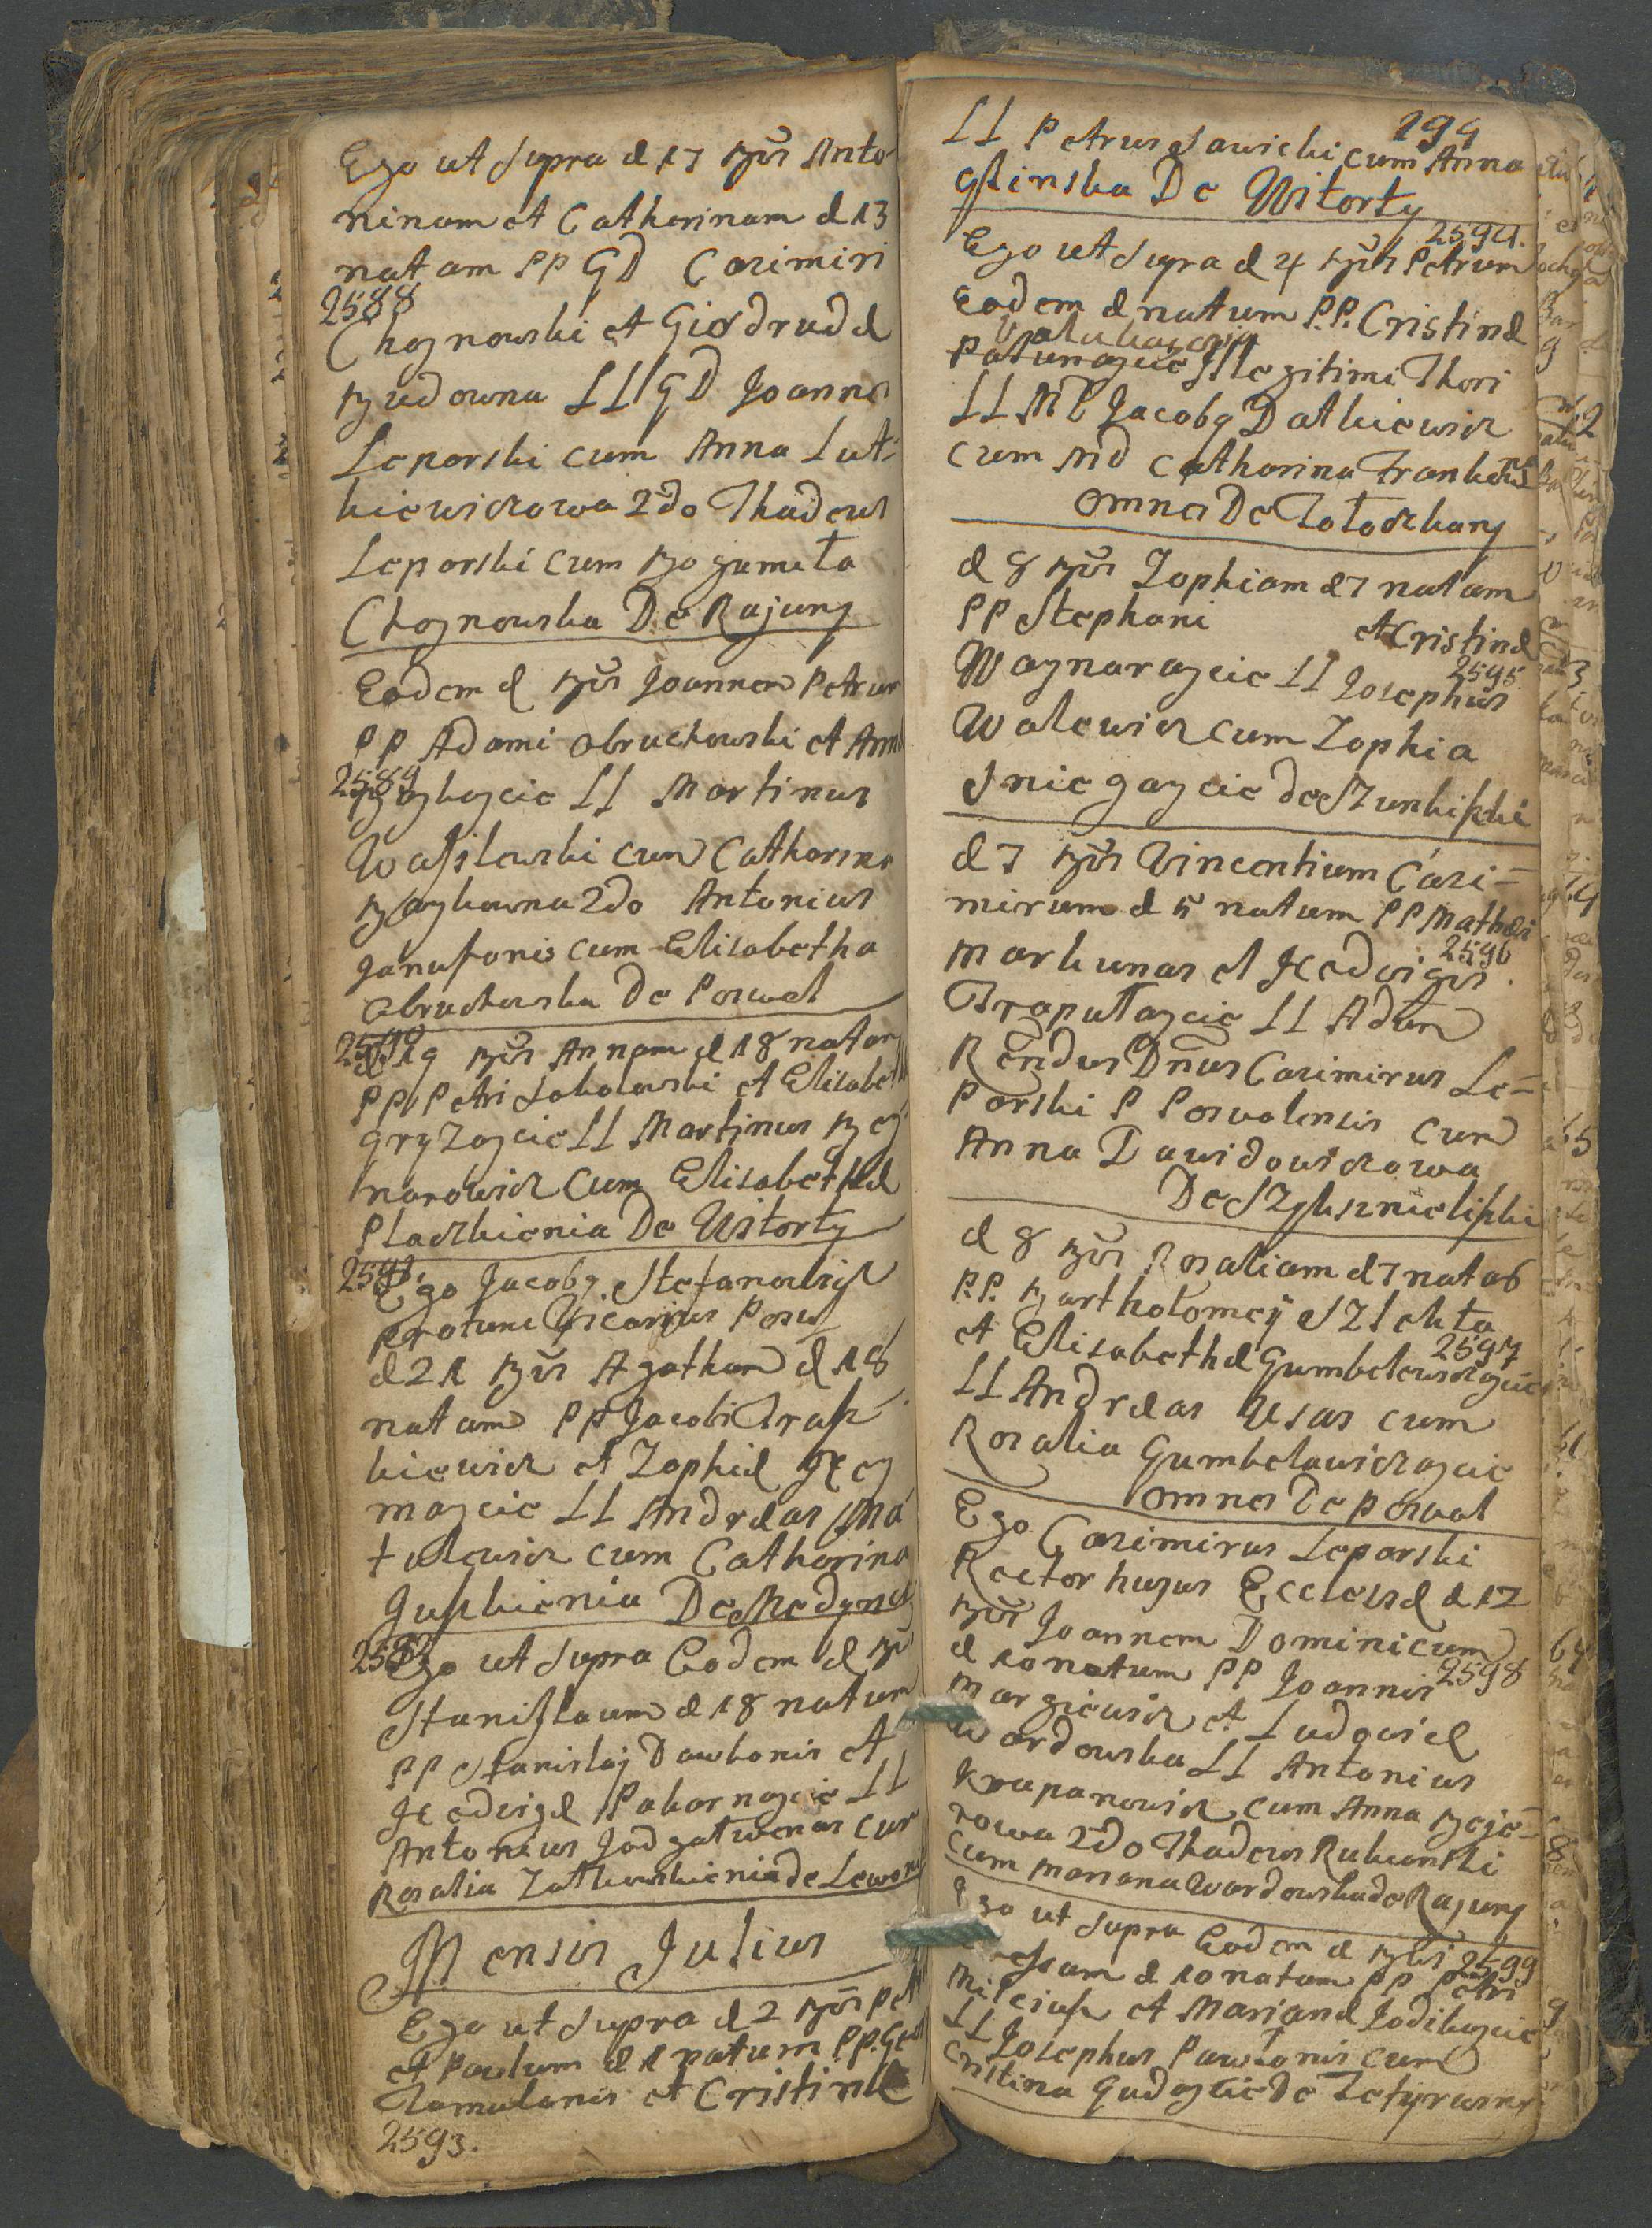 Ego ut supra d 17 bzūs Anto
ninam et Catharinam d 13
natam PP GD Casimiri
2588
Chojnowski et Giedrudæ
budowna LL GD Joannes
Leparski cum Anna Lut-
kiewiczowa 2do Thadeus
Leparski cum Bogumiła
Chojnowska De Rajuny
Eodem d bzūs Joannem Petrum
PP Adami Obruchowski et Annæ
2589
LL Martinus
Wasilewski cum Catharina
2do Antonius
Janusonis cum Elisabetha
Obruchowska De Poswol
2590
d 19 bzūs Annam d 18 natam
PP Petri Sokolowski et Elisabeth
Gryzaycie LL Martinus Bey
narowicz cum Elisabetha
Placzkienia De Ustorty
2591.
Ego Jacobg Stefanowicz
protunc Vicarius Posv
d 21 bzūs Agatham d 18
natam PP Jacobi Trasz-
kiewicz et Zophiæ Jey
maycie LL Andreas Ma
tulewicz cum Catharina
Juszkienia De Medyne
2592
Ego ut supra Eodem d bzū
Stanislaum d 18 natum
PP Stanislaj Dawkonis et
Hedvigæ Pakarnaycie LL
Antonius Jodgatwenas cum
Rosalia Zatkowskienia de Lewany
Mensis Julius
Ego ut supra d 2 bzūs Pet
et Paulum d 1 natum P.P. Geor
Tamulonis et Cristinæ
2593.
194
LL Petrus Sawicki cum Anna
Glinska De Ustorty
2594.
Ego ut supra d 4 bzūs Petrum
Eodem d natum P.P. Cristinæ
Illegitimi Thori
LL MD Jacobg Datkiewicz
cum MD Catharina Frank
omnes De Totoczkany
d 8 bzūs Zophiam d 7 natam
PP Stephani et Cristinæ
2595
Waynaraycie LL Josephus
Walewicz cum Zophia
Sniegaycie de Szunkiszki
d 7 bzūs Vincentium Casi-
mirum d 5 natum PP Mathæi
2596
Markunas et Hedvigis
Trapulaycie LL Adm
Rendus Dnus Casimirus Le-
parski P Posvolensis cum
Anna Dawidowiczowa
De Szyksznieliszki
d 8 bzūs Rosaliam d 7 natas
P.P. Bartholomej Szlekta
2597
et Elisabethæ Gumbelewiczaycie
LL Andreas Usas cum
Rosalia Gumbelawiczaycie
omnes De Poswol
Ego Casimirus Leparski
Rector hujus Ecclesiæ d 12
bzūs Joannem Dominicum
d 10 natum PP Joannis
2598
Margiewicz et Ludovicæ
Wardowska LL Antonius
Krapanowicz cum Anna Beje-
rowa 2do Thadeus Rukunski
cum Mariana Wardowska de Rajuny
Ego ut supra Eodem d bzūs
2599
d 10 natam PP Petri
Mileiusz et Marianæ Jodikaycie
LL Josephus Pawlonis cum
Cristina Gudaycie De Zetyrusner